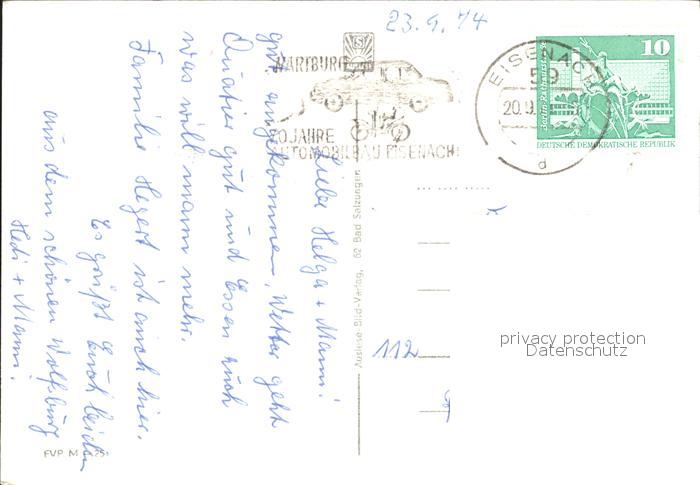 23.9.74
WARTBURG
JAHRE
AUTOMOBILBAU EISENACH
EISENACH
59
20.9.
d
10
Berlin, Rathausstraße
DEUTSCHE DEMOKRATISCHE REPUBLIK
Liebe Helga + Manni!
gut angekommen, Wetter geht
Quatier gut und Essen auch
was will mann mehr.
Familie Hegert ist auch hier.
Es grüßt Euch beiden
aus dem schönen Wolfsburg
Hedi + Manni.
Auslese-Bild-Verlag, 62 Bad Salzungen
112
privacy protection
Datenschutz
FVP M